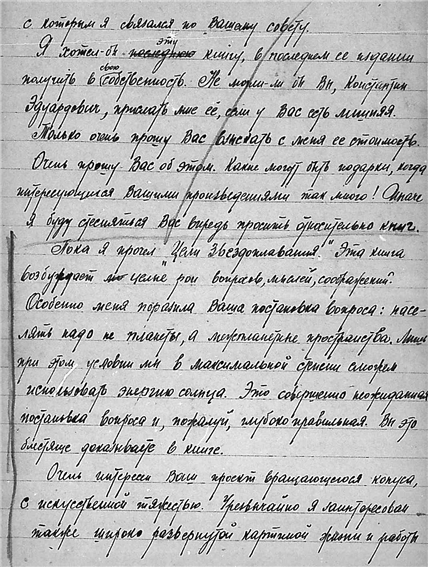 с которым я связался по Вашему совету.
Я хотел-бы последнюю эту книгу, в последнем её издании
получить в свою собственность. Не могли-ли бы Вы, Константин
Эдуардович, прислать мне её, если у Вас есть лишняя.
Только очень прошу Вас взыскать с меня её стоимость.
Очень прошу Вас об этом. Какие могут быть подарки, когда
интересующихся Вашими произведениями так много! Иначе
я буду стесняться Вас впредь просить относительно книг.
Пока я прочел "Цели Звездоплавания". Эта книга
возбуждает целые рои вопросов, мыслей, соображений.
Особенно меня поразила Ваша постановка вопроса: насе-
лять надо не планеты, а межпланетные пространства. Лишь
при этом условии мы в максимальной степени сможем
использовать энергию солнца. Это совершенно неожиданная
постановка вопроса и, пожалуй, глубоко правильная. Вы это
блестяще доказываете в книге.
Очень интересен Ваш проект вращающегося конуса,
с искусственной тяжестью. Чрезвычайно я заинтересован
также широко развернутой картиной жизни и работы